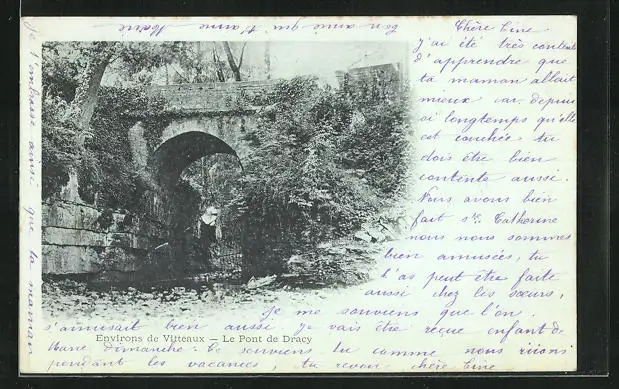 Chère Line
j'ai été très contente
d'apprendre que
ta maman allait
mieux car depuis
si longtemps qu'elle
est couchée tu
dois être bien
contente aussi.
Nous avons bien
fait ste Catherine
nous nous sommes
bien amusées, tu
l'as peut être faite
aussi chez les sœurs,
je me souviens que l'on
s'amusait bien aussi je vais être reçue enfant de
dimanche. te souviens tu comme nous riions
pendant les vacances, tu revoir chère Line
Environs de Vitteaux — Le Pont de Dracy
Je t'embrasse ainsi que ta maman
Ton amie qui t'aime Marie